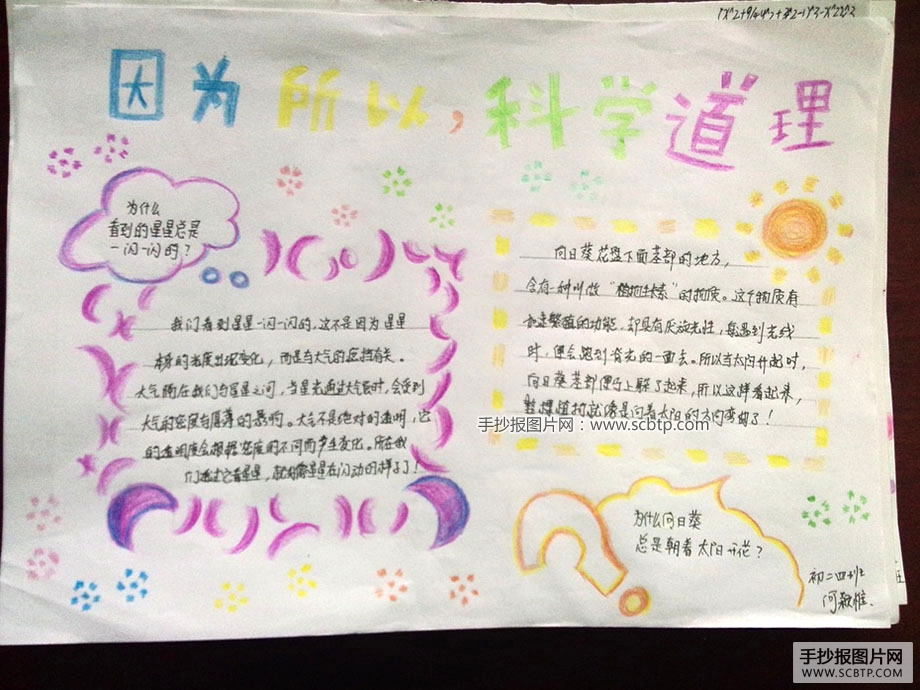 因为所以,科学道理
为什么
看到的星星总是
一闪一闪的?
我们看到星星一闪一闪的,这不是因为星星
本身的光度出现变化,而是与大气的遮挡有关。
大气隔在我们与星星之间,当星光通过大气层时,会受到
大气的密度与厚薄的影响。大气不是绝对的透明,它
的透明度会根据密度的不同而产生变化。所在我
们透过它看星星,就好像星星在闪动的样子了!
向日葵花盘下面茎部的地方,
含有一种叫做“植物生长素”的物质。这个物质有
加速繁殖的功能,却具有厌旋光性,每遇到光线
时,便会跑到背光的一面去。所以当太阳升起时,
向日葵茎部便
了起来,所以这样看起来,
整棵植物就像是向着太阳的方向弯曲了!
手抄报图片网:www.scbtp.com
为什么向日葵
总是朝着太阳开花?
初二四班
手抄报图片网
WWW.SCBTP.COM